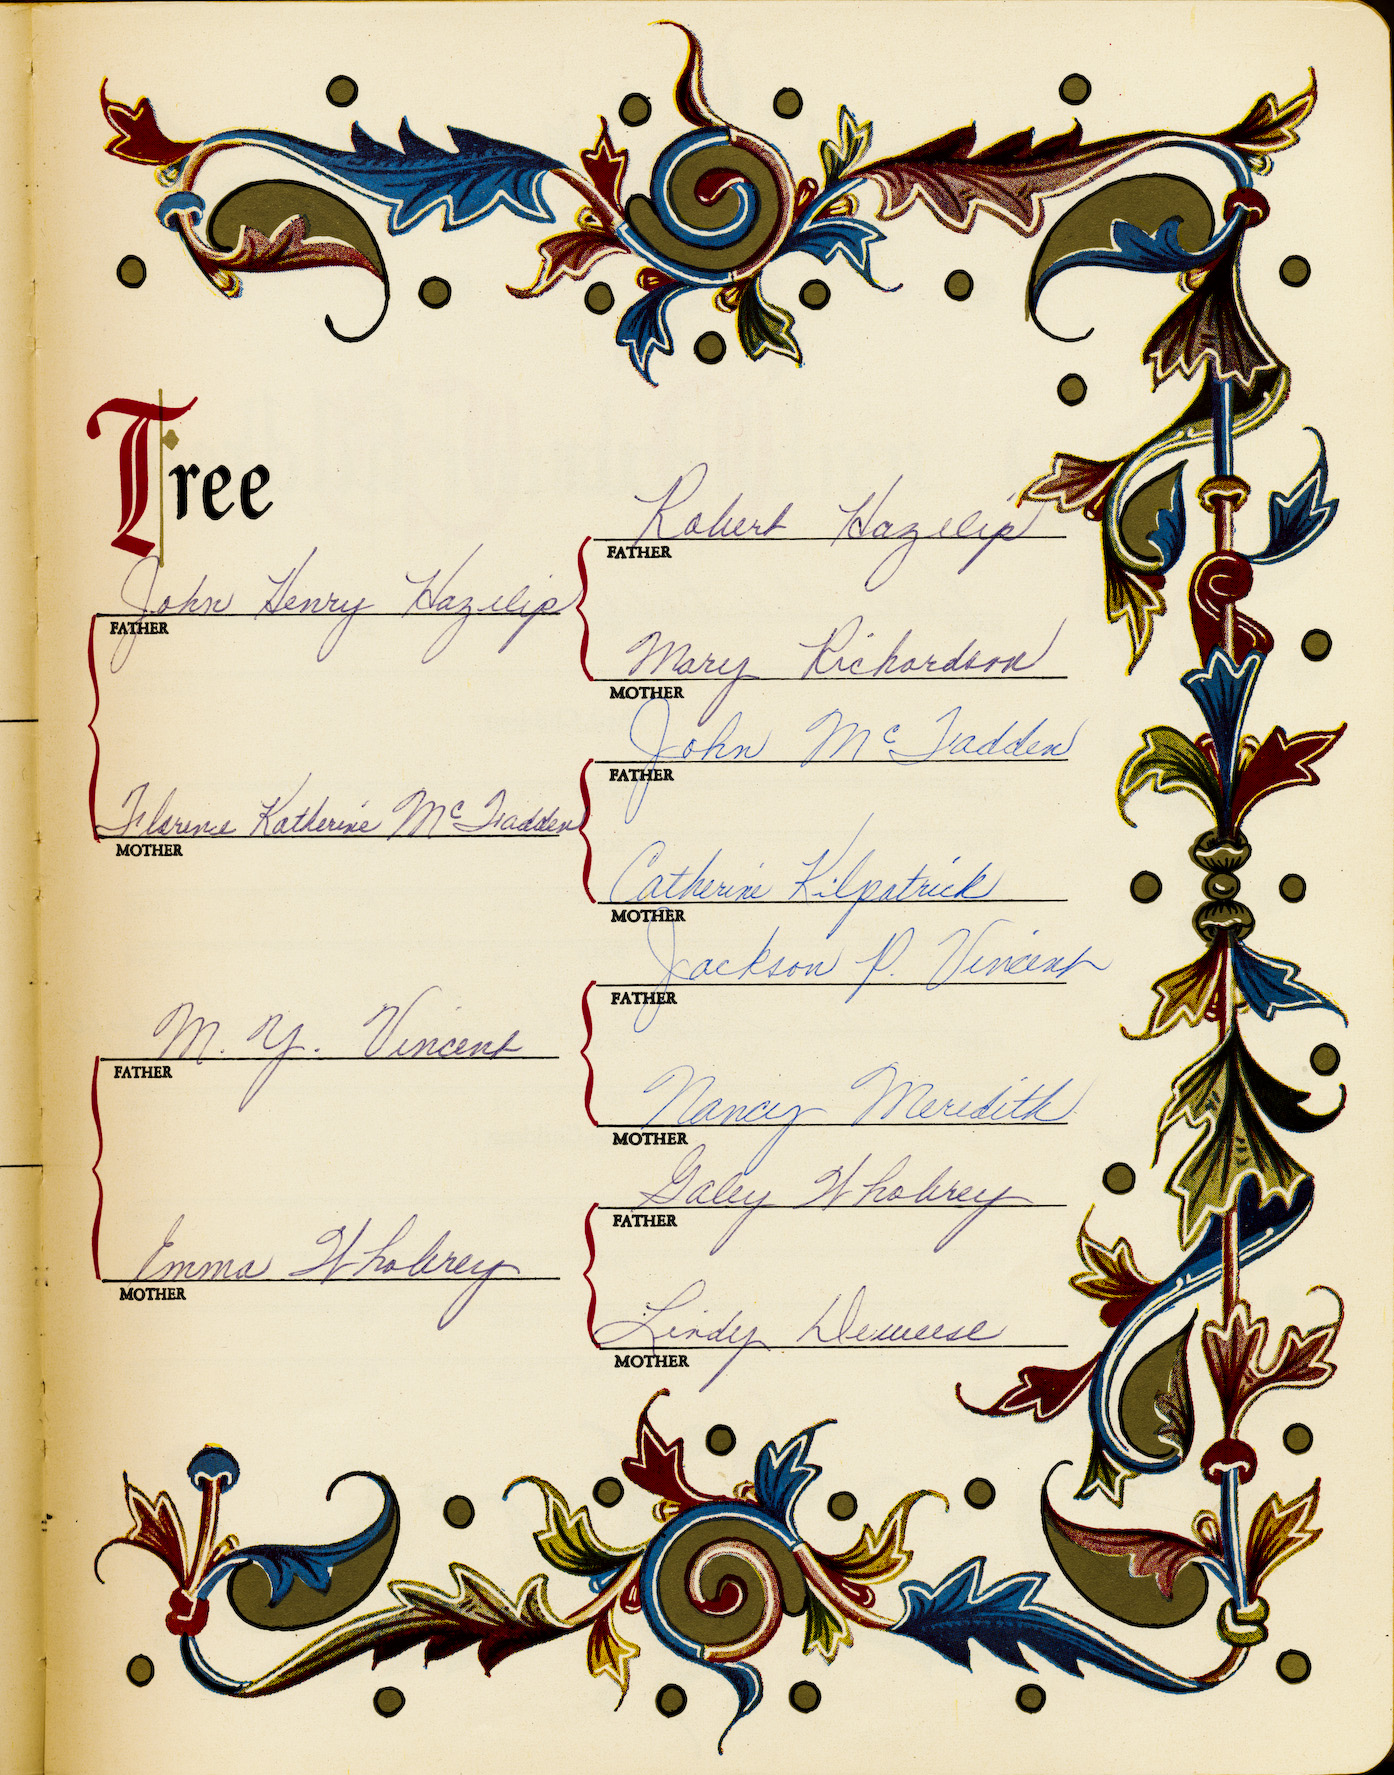 Tree
Robert Hazelip
FATHER
John Henry Hazelip
FATHER
Mary Richardson
MOTHER
John Mc Fadden
FATHER
Florence Katherine Mc Fadden
MOTHER
Catherine Kilpatrick
MOTHER
Jackson P. Vincent
FATHER
M. Y. Vincent
FATHER
Nancy Meredith
MOTHER
Galey Whobrey
FATHER
Emma Whobrey
MOTHER
Lindy Deweese
MOTHER